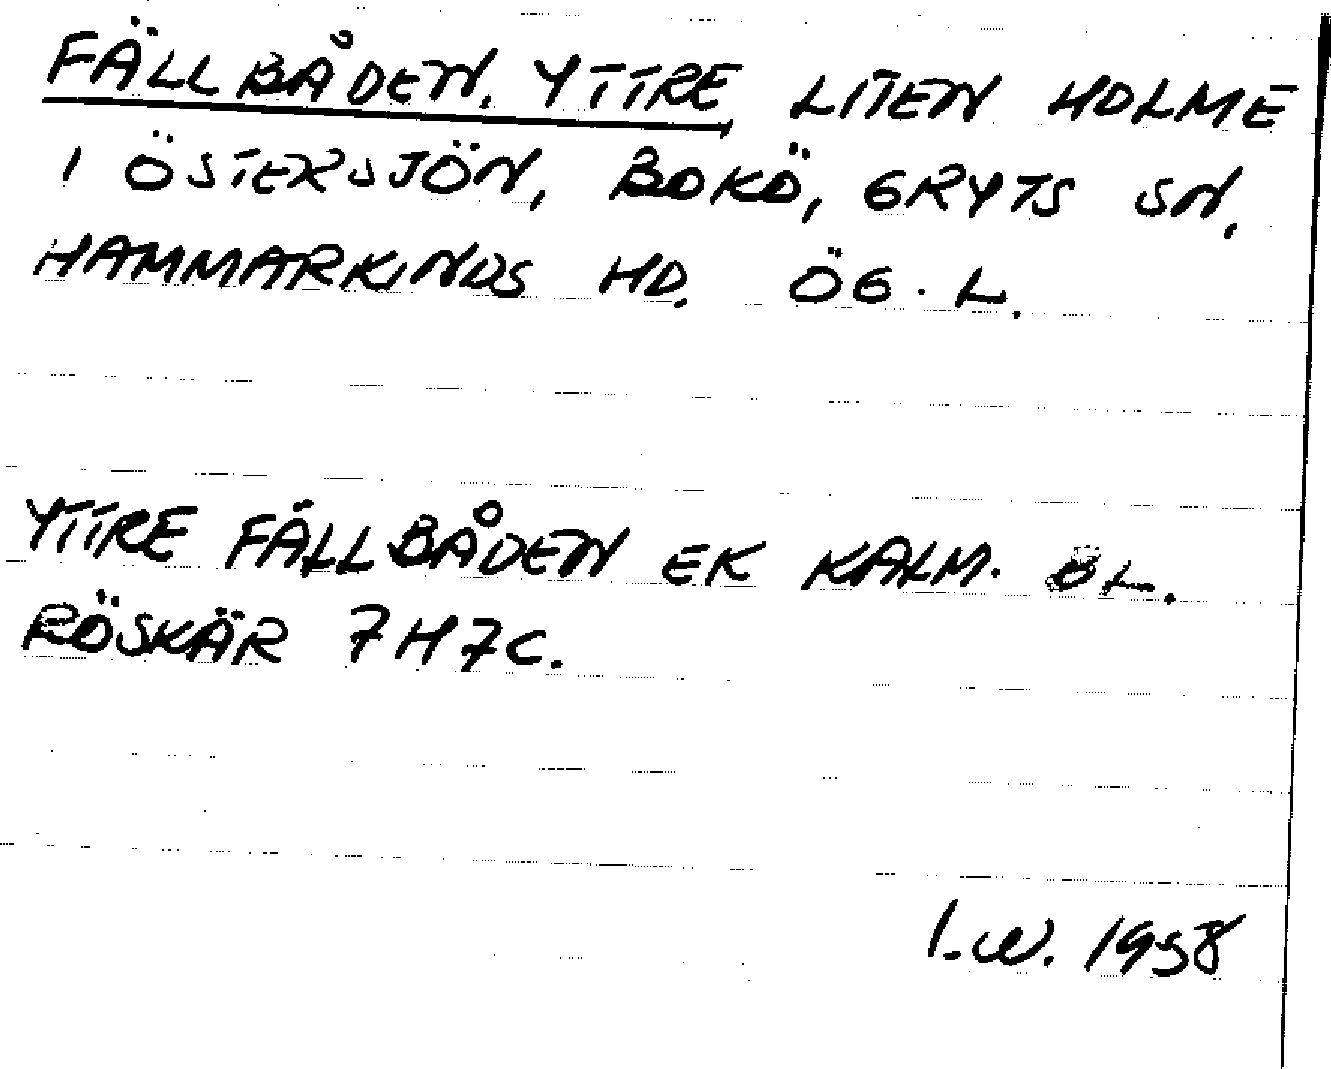 FÄLLBÅDEN, YTTRE LITEN HOLME
I ÖSTERSJÖN, BOKÖ, GRYTS SN.
HAMMARKINDS HD. ÖG. L.
YTTRE FÄLLBÅDEN EK KALM. ÖL.
RÖSKÄR 7H7C.
I.W. 1958